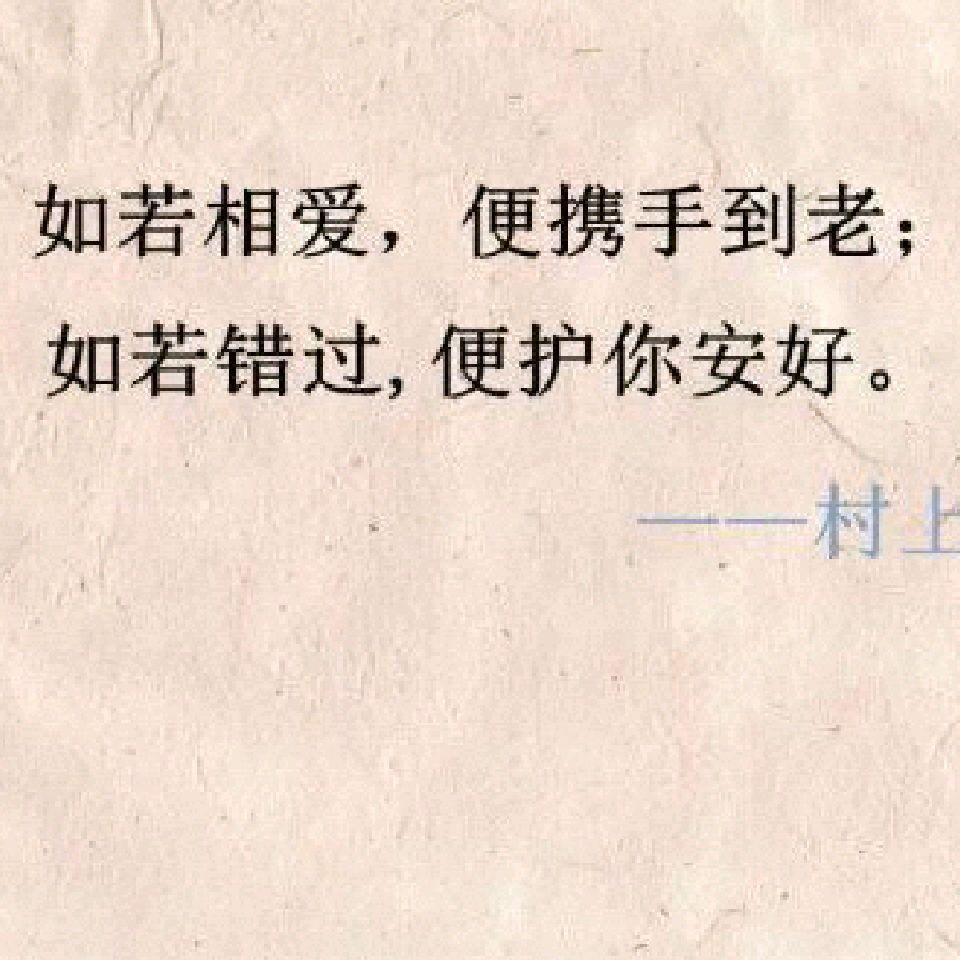 如若相爱，便携手到老；
如若错过,便护你安好。
——村上